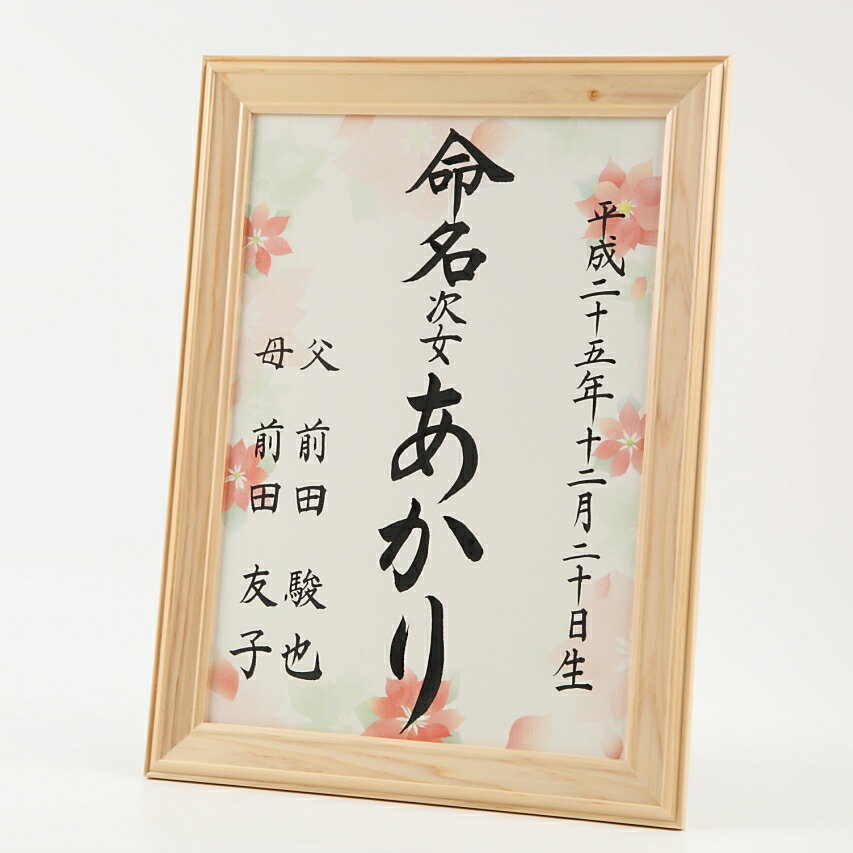 平成二十五年十二月二十日生
命名 次女 あかり
父 前田 駿也
母 前田 友子